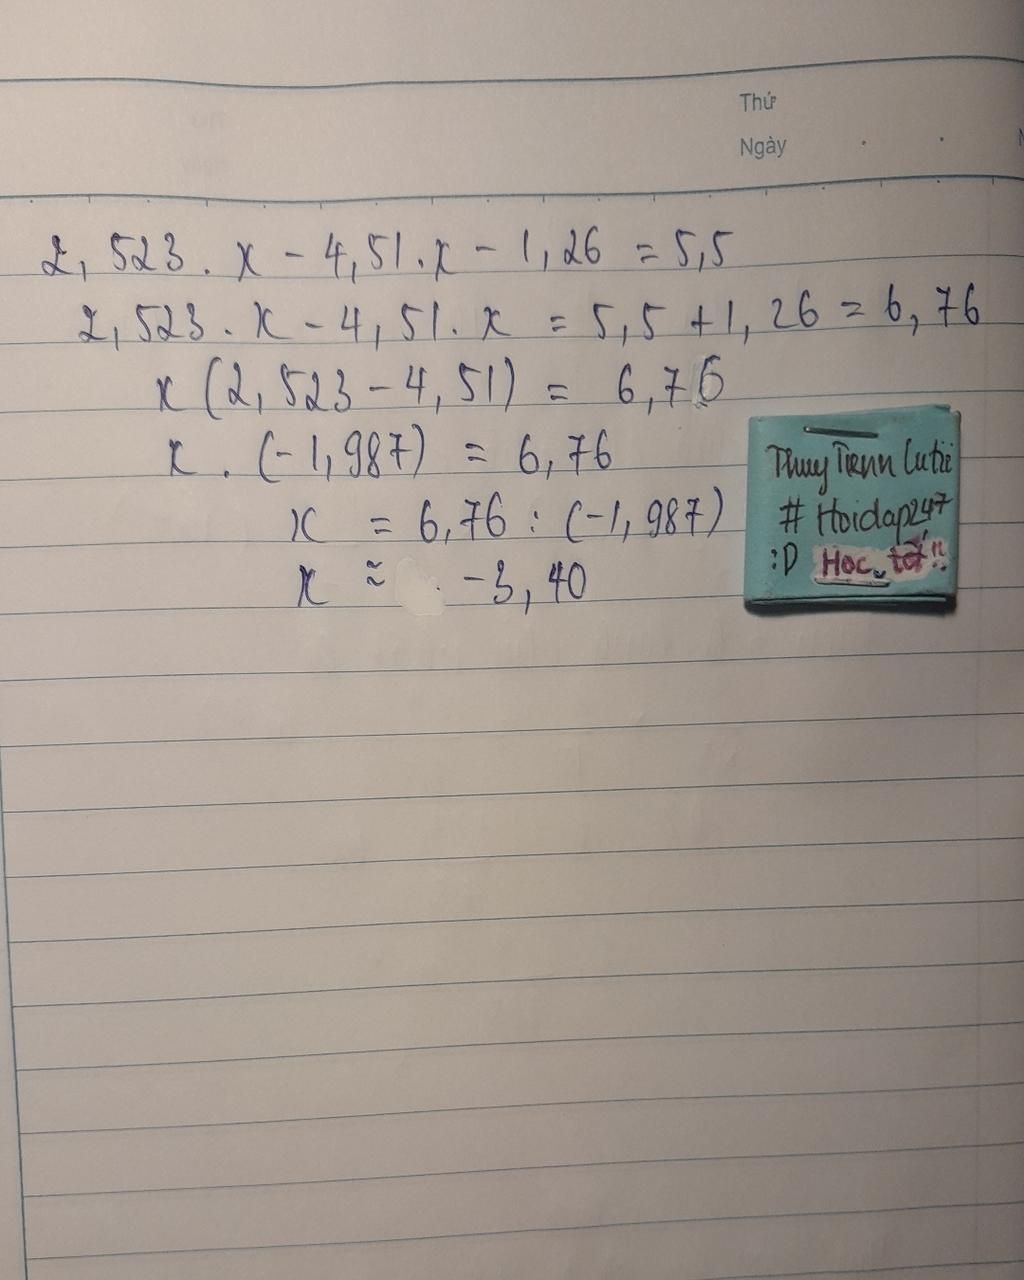 Thứ
Ngày
2,523 . x - 4,51 . x - 1,26 = 5,5
2,523 . x - 4,51 . x = 5,5 + 1,26 = 6,76
x (2,523 - 4,51) = 6,76
x . (-1,987) = 6,76
x = 6,76 : (-1,987)
x ≈ -3,40
Thuy Tienn Cutii
# Hoidap247
:D Học tốt!!